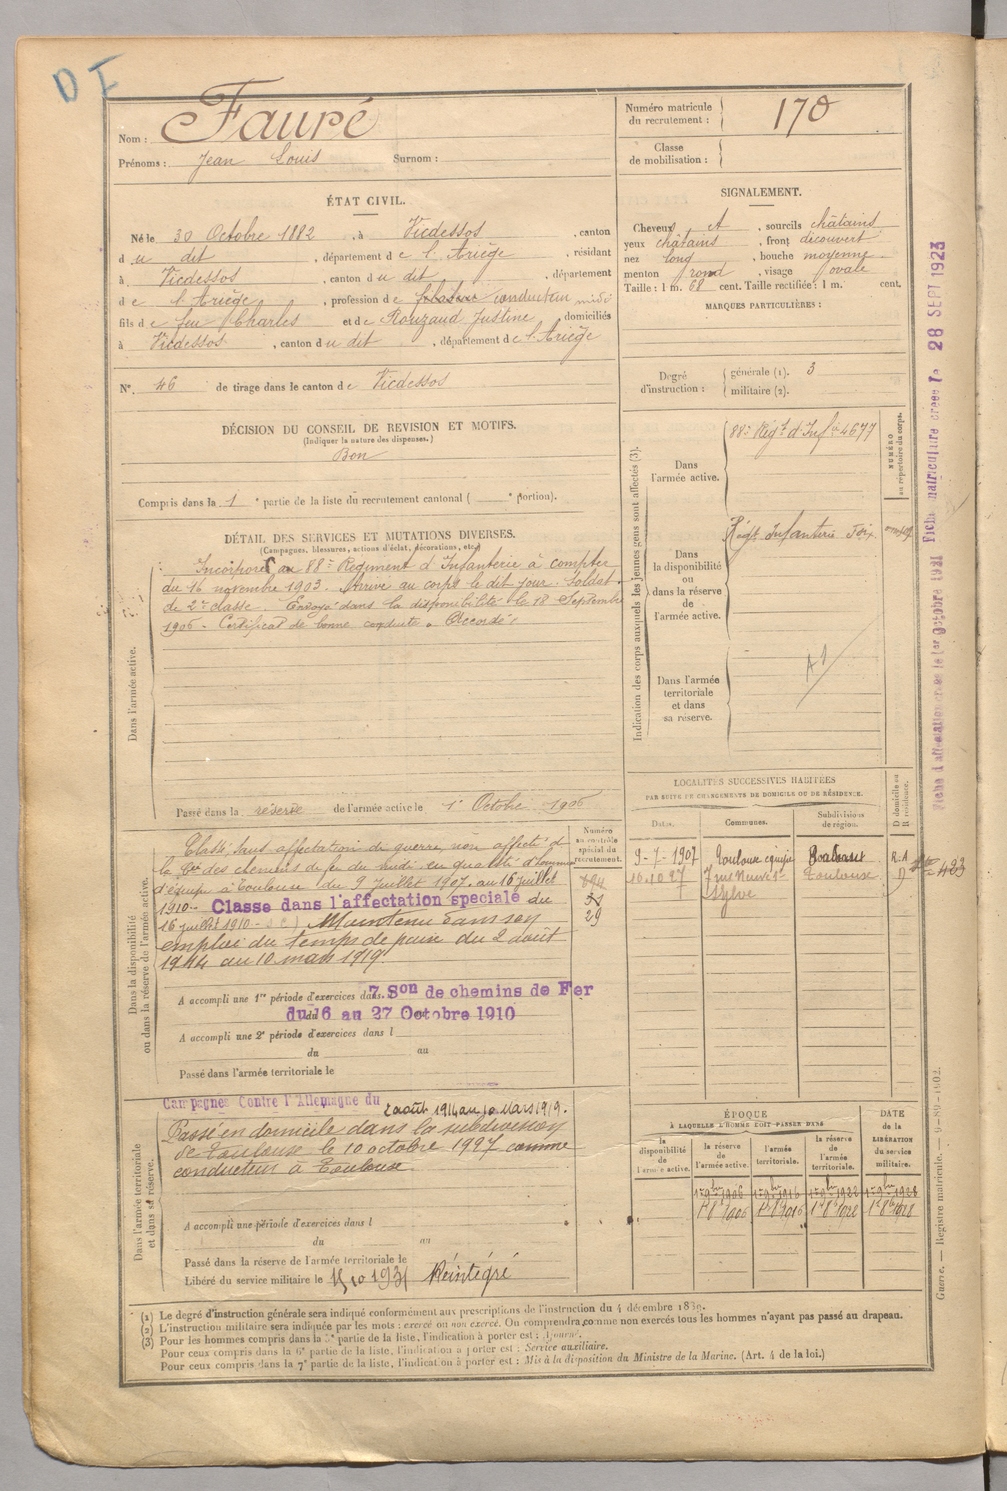 DI
Nom : Fauré
Prénoms : Jean Louis Surnom :
Numéro matricule du recrutement : 170
Classe de mobilisation :
ÉTAT CIVIL.
Né le 30 Octobre 1882, à Vicdessos, canton
du dit, département de l'Ariège, résidant
à Vicdessos, canton du dit, département
de l'Ariège, profession de conducteur midi
fils de feu Charles et de Rouzaud Justine, domiciliés
à Vicdessos, canton du dit, département de l'Ariège
N°. 46 de tirage dans le canton de Vicdessos
SIGNALEMENT.
Cheveux et, sourcils châtains
yeux châtains, front découvert
nez long, bouche moyenne
menton rond, visage ovale
Taille : 1 m. 68 cent. Taille rectifiée : 1 m. cent.
MARQUES PARTICULIÈRES :
Degré d'instruction : générale (1). 3
militaire (2).
DÉCISION DU CONSEIL DE REVISION ET MOTIFS.
(Indiquer la nature des dispenses.)
Bon
Compris dans la 1e partie de la liste du recrutement cantonal ( e portion).
DÉTAIL DES SERVICES ET MUTATIONS DIVERSES.
(Campagnes, blessures, actions d'éclat, décorations, etc.)
Dans l'armée active.
Incorporé au 88e Régiment d'Infanterie à compter
du 16 novembre 1903. Arrivé au corps le dit jour. Soldat
de 2e classe. Envoyé dans la disponibilité le 18 Septembre
1906. Certificat de bonne conduite "Accordé"
Passé dans la réserve de l'armée active le 1er Octobre 1906
Indication des corps auxquels les jeunes gens sont affectés (3).
NUMÉRO au répertoire du corps.
Dans l'armée active.
88e Régt d'Infie 4677
Dans la disponibilité ou dans la réserve de l'armée active.
Régt Infanterie Foix
Dans l'armée territoriale et dans sa réserve.
Dans la disponibilité ou dans la réserve de l'armée active.
Numéro au contrôle spécial du recrutement.
Classé sans affectation de guerre, non affecté de
la Cie des chemins de fer du midi en qualité d'homme
d'équipe à Toulouse du 9 juillet 1907 au 16 juillet
1910. Classé dans l'affectation spéciale du
16 juillet 1910 Maintenu dans son
emploi du temps de paix du 2 août
1914 au 10 mars 1919.
29
A accompli une 1re période d'exercices dans 7 Son de chemins de Fer
du 16 au 27 Octobre 1910
A accompli une 2e période d'exercices dans l
du au
Passé dans l'armée territoriale le
LOCALITÉS SUCCESSIVES HABITÉES
PAR SUITE DE CHANGEMENTS DE DOMICILE OU DE RÉSIDENCE.
Dates. Communes. Subdivisions de région. D domicile ou R résidence.
9-7-1907 Toulouse Toulouse R.A
10.10.27 Toulouse D
423
Dans l'armée territoriale et dans sa réserve.
Campagnes Contre l'Allemagne du 2 août 1914 au 10 Mars 1919.
Passé en domicile dans la subdivision
de Toulouse le 10 octobre 1927 comme
conducteur à Toulouse
A accompli une période d'exercices dans l
du au
Passé dans la réserve de l'armée territoriale le
Libéré du service militaire le 15 10 1931 Réintégré
ÉPOQUE
À LAQUELLE L'HOMME DOIT PASSER DANS
la disponibilité de l'armée active. la réserve de l'armée active. l'armée territoriale. la réserve de l'armée territoriale.
DATE de la LIBÉRATION du service militaire.
1er 9bre 1906 1er 9bre 1916 1er 9bre 1922 1er 9bre 1928
(1) Le degré d'instruction générale sera indiqué conformément aux prescriptions de l'instruction du 4 décembre 1889.
(2) L'instruction militaire sera indiquée par les mots : exercé ou non exercé. On comprendra comme non exercés tous les hommes n'ayant pas passé au drapeau.
(3) Pour les hommes compris dans la 5e partie de la liste, l'indication à porter est : Ajourné.
Pour ceux compris dans la 6e partie de la liste, l'indication à porter est : Service auxiliaire.
Pour ceux compris dans la 7e partie de la liste, l'indication à porter est : Mis à la disposition du Ministre de la Marine. (Art. 4 de la loi.)
28 SEPT 1923
Guerre. — Registre matricule.